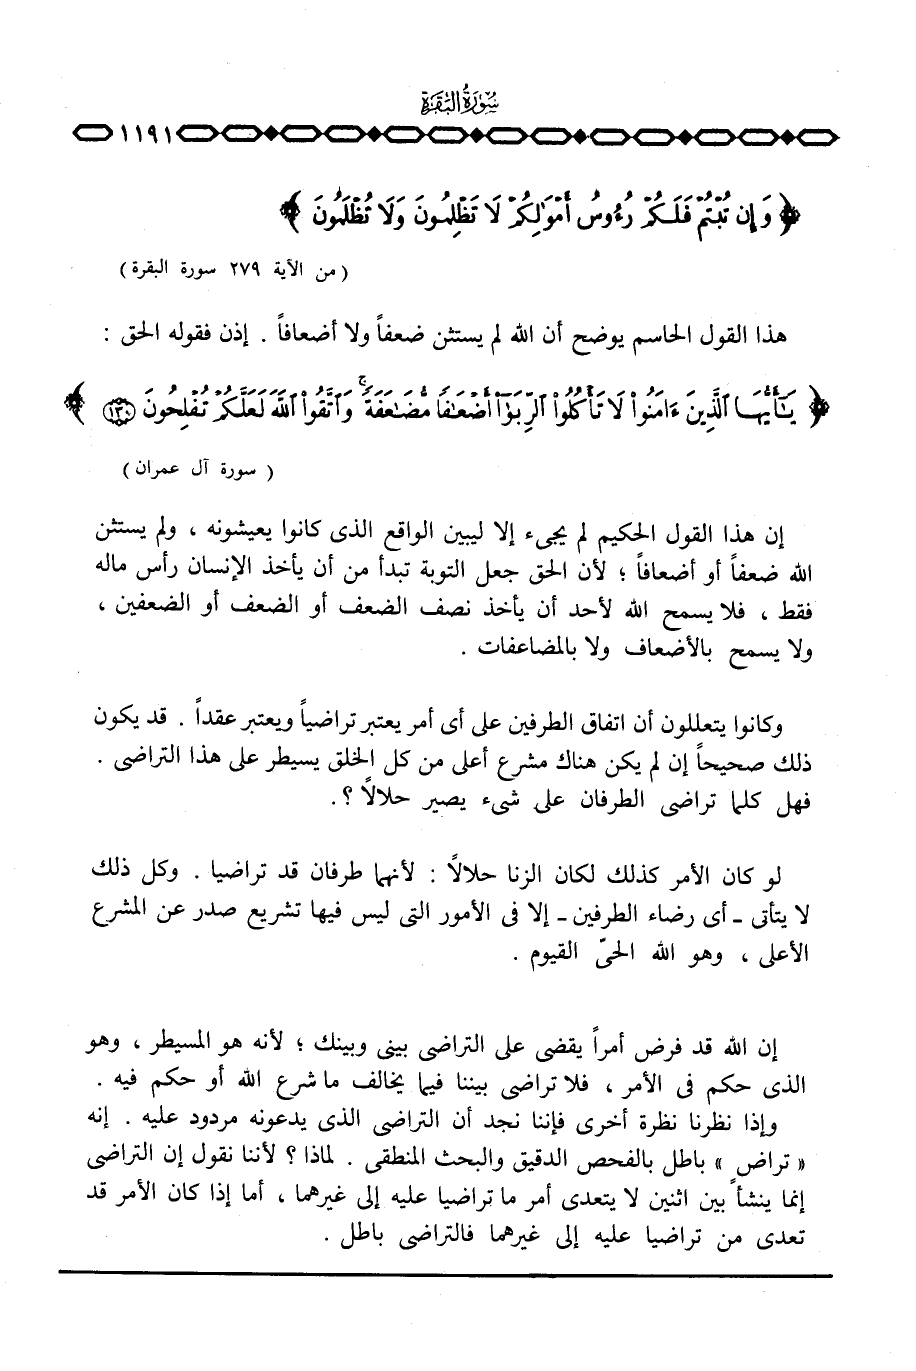 سورة البقرة
١١٩١
﴿ وَإِن تُبْتُمْ فَلَكُمْ رُءُوسُ أَمْوَٰلِكُمْ لَا تَظْلِمُونَ وَلَا تُظْلَمُونَ ﴾
( من الآية ٢٧٩ سورة البقرة )
هذا القول الحاسم يوضح أن الله لم يستثن ضعفاً ولا أضعافاً . إذن فقوله الحق :
﴿ يَـٰٓأَيُّهَا ٱلَّذِينَ ءَامَنُوا۟ لَا تَأْكُلُوا۟ ٱلرِّبَوٰٓا۟ أَضْعَـٰفًا مُّضَـٰعَفَةً ۖ وَٱتَّقُوا۟ ٱللَّهَ لَعَلَّكُمْ تُفْلِحُونَ ١٣٠ ﴾
( سورة آل عمران )
إن هذا القول الحكيم لم يجىء إلا ليبين الواقع الذى كانوا يعيشونه ، ولم يستثن
الله ضعفاً أو أضعافاً ؛ لأن الحق جعل التوبة تبدأ من أن يأخذ الإنسان رأس ماله
فقط ، فلا يسمح الله لأحد أن يأخذ نصف الضعف أو الضعف أو الضعفين ،
ولا يسمح بالأضعاف ولا بالمضاعفات .
وكانوا يتعللون أن اتفاق الطرفين على أى أمر يعتبر تراضياً ويعتبر عقداً . قد يكون
ذلك صحيحاً إن لم يكن هناك مشرع أعلى من كل الخلق يسيطر على هذا التراضى .
فهل كلما تراضى الطرفان على شىء يصير حلالاً ؟.
لو كان الأمر كذلك لكان الزنا حلالاً : لأنهما طرفان قد تراضيا . وكل ذلك
لا يتأتى ـ أى رضاء الطرفين ـ إلا فى الأمور التى ليس فيها تشريع صدر عن المشرع
الأعلى ، وهو الله الحىّ القيوم .
إن الله قد فرض أمراً يقضى على التراضى بينى وبينك ؛ لأنه هو المسيطر ، وهو
الذى حكم فى الأمر ، فلا تراضى بيننا فيما يخالف ما شرع الله أو حكم فيه .
وإذا نظرنا نظرة أخرى فإننا نجد أن التراضى الذى يدعونه مردود عليه . إنه
« تراضٍ » باطل بالفحص الدقيق والبحث المنطقى . لماذا ؟ لأننا نقول إن التراضى
إنما ينشأ بين اثنين لا يتعدى أمر ما تراضيا عليه إلى غيرهما ، أما إذا كان الأمر قد
تعدى من تراضيا عليه إلى غيرهما فالتراضى باطل .